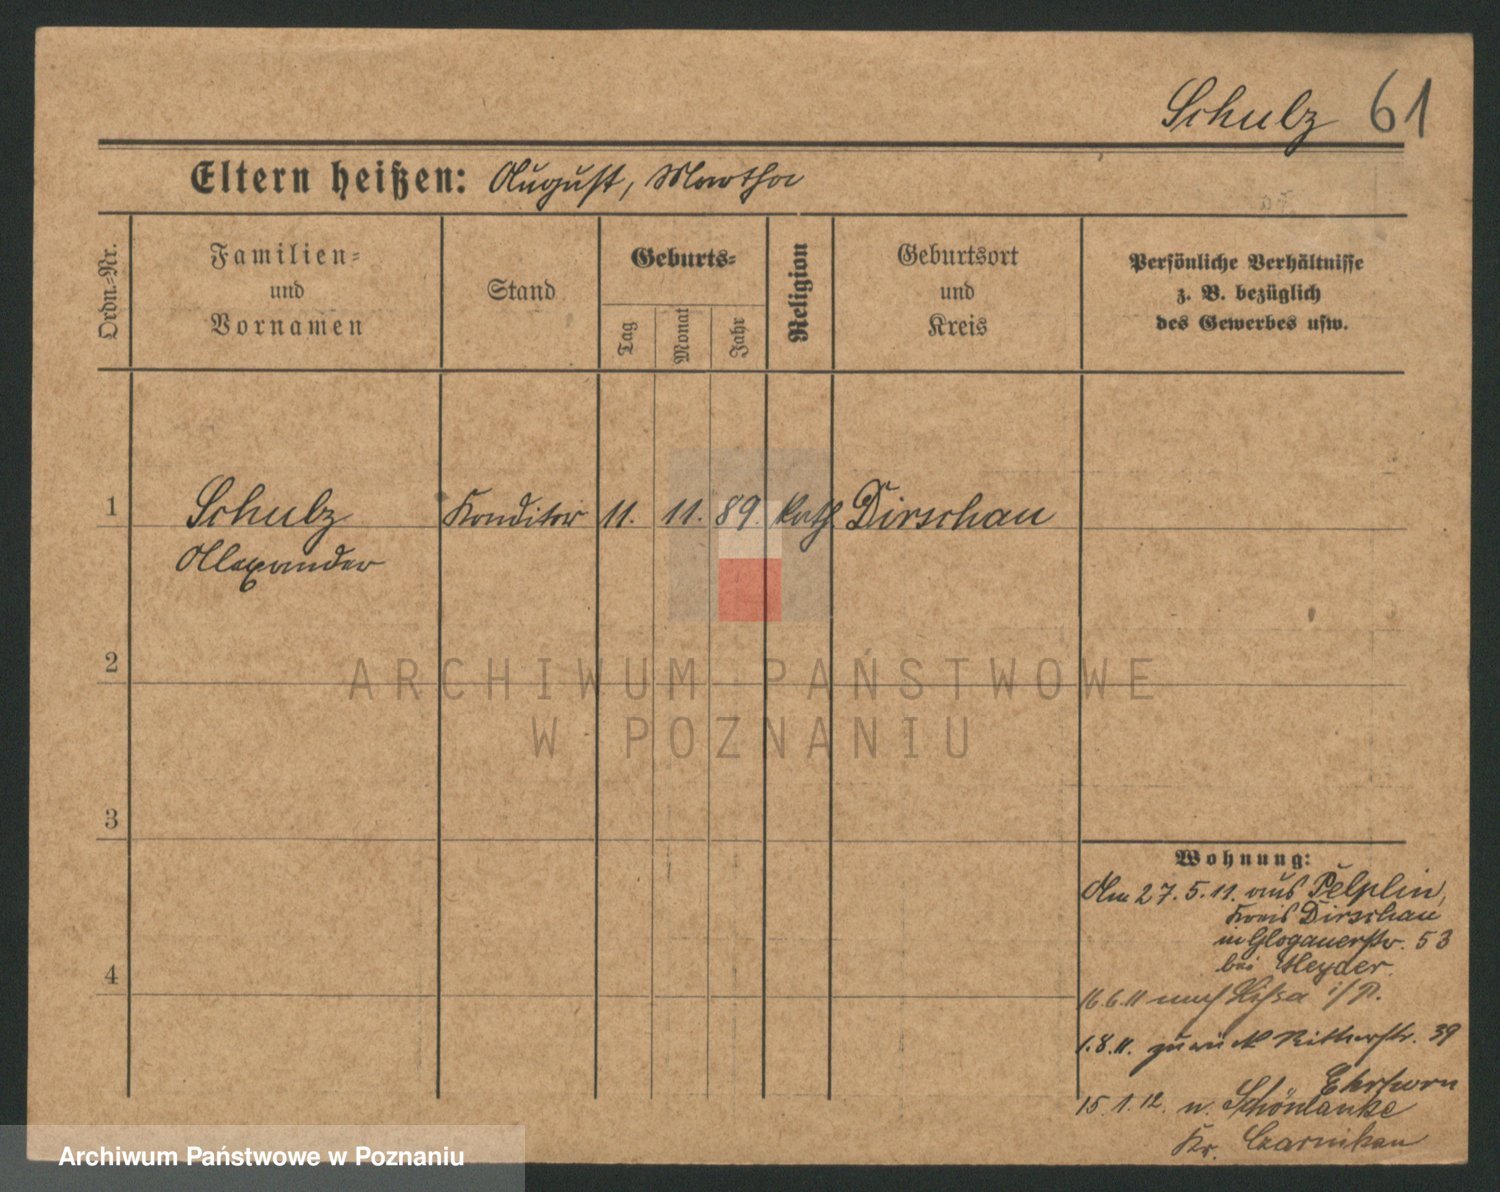 Schulz 61
Eltern heißen: August, Martha
Ordn.-Nr.
Familien-
und
Vornamen
Stand
Geburts-
Tag
Monat
Jahr
Religion
Geburtsort
und
Kreis
Persönliche Verhältnisse
z. B. bezüglich
des Gewerbes usw.
1 Schulz Konditor 11. 11. 89. kath. Dirschau
Alexander
2
ARCHIWUM PAŃSTWOWE
W POZNANIU
3
Wohnung:
Am 27.5.11. aus Pelplin,
Kreis Dirschau
in Glogauerstr. 53
bei Heyder.
4
16.6.11 nach Lissa i/P.
1.8.11. zurück Ritterstr. 39
Ehrhorn
15.1.12. n. Schönlanke
Kr. Czarnikau
Archiwum Państwowe w Poznaniu